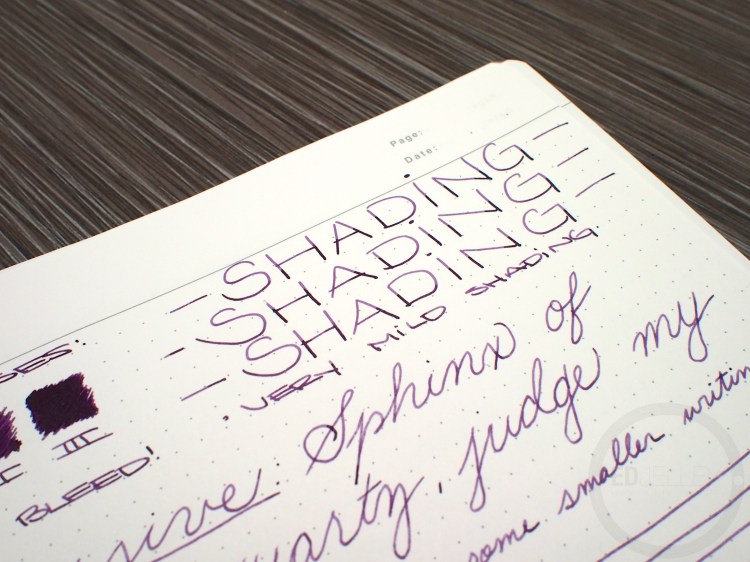 Page:
Date:
- SHADiNG -
- SHADiNG -
- SHADiNG -
. VERY MILD SHADiNG
III
BLEED!
Sphinx of
judge my
some smaller